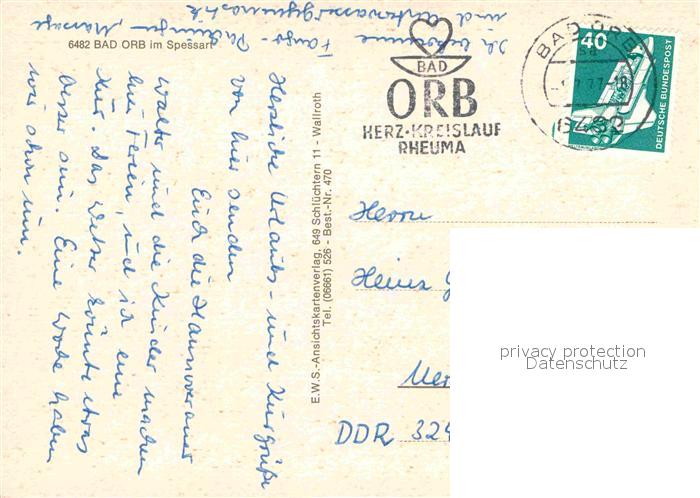 6482 BAD ORB im Spessart
Herzliche Urlaubs- und Kurgrüße
von hier senden
Euch die Hannoveraner
Walter und die Kinder machen
hier Ferien, und ich eine
Kur. Das Wetter könnte etwas
besser sein. Eine Woche haben
wir schon um.
Ich bekomme Fango-Packungen, Massage
und Unterwassergymnastik
E.W.S.-Ansichtskartenverlag, 649 Schlüchtern 11 - Wallroth
Tel. (06661) 526 - Best.-Nr. 470
BAD
ORB
HERZ-KREISLAUF
RHEUMA
BAD ORB
6482
40
DEUTSCHE BUNDESPOST
Herrn
Heinz
DDR 324
privacy protection
Datenschutz